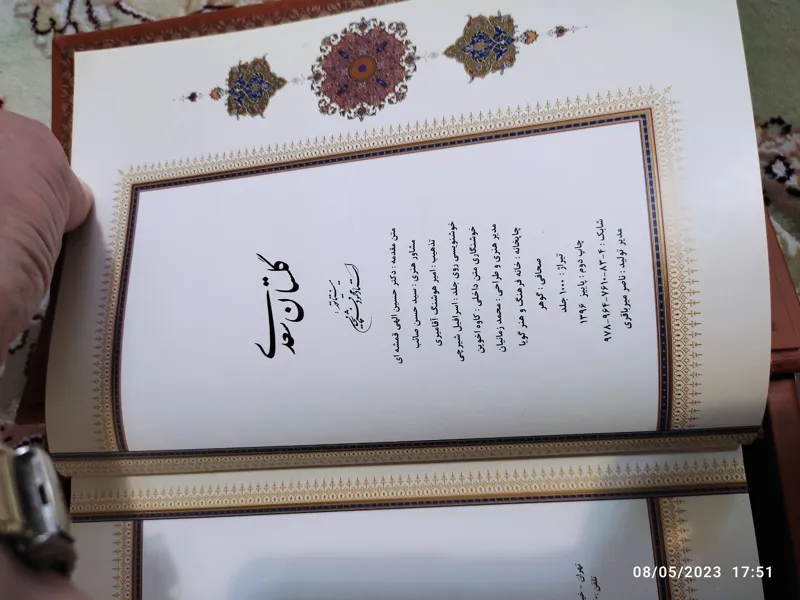 گلستان سعدی
متن مقدمه: دکتر حسین الهی قمشه ای
مشاور هنری: سید حسن صائب
تذهیب: امیر هوشنگ آقامیری
خوشنویسی روی جلد: اسرافیل شیرچی
خوشنگاری متن داخلی: کاوه اخوین
مدیر هنری و طراحی: محمد زمانیان
چاپخانه: خانه فرهنگ و هنر گویا
صحافی: گوهر
تیراژ: ۱۰۰۰ جلد
چاپ دوم: پاییز ۱۳۹۶
شابک: ۴-۸۳-۷۶۱-۹۶۴-۹۷۸
مدیر تولید: ناصر میرباقری
تهران -
تلفن
08/05/2023 17:51